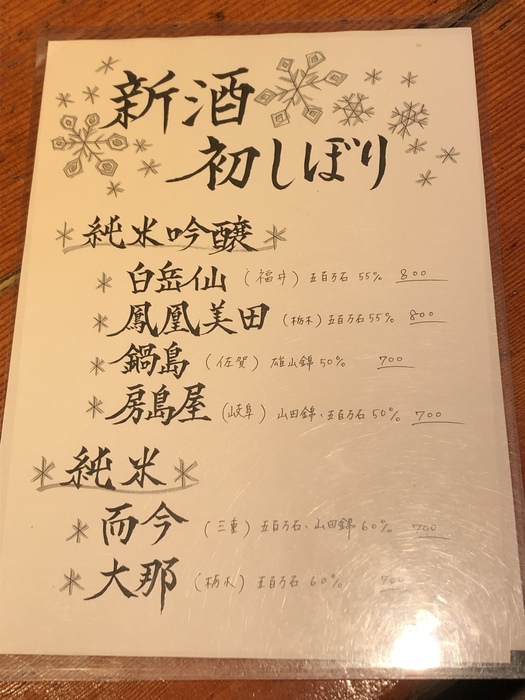 新酒
初しぼり
純米吟醸
白岳仙 (福井) 五百万石 55% 800
鳳凰美田 (栃木) 五百万石 55% 800
鍋島 (佐賀) 雄山錦 50% 700
房島屋 (岐阜) 山田錦・五百万石 50% 700
純米
而今 (三重) 五百万石・山田錦 60% 700
大那 (栃木) 五百万石 60%